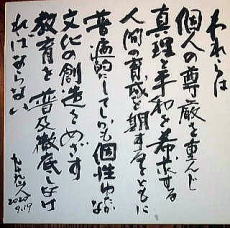 われらは
個人の尊厳を重んじ
真理と平和を希求する
人間の育成を期するとともに
普遍的にしてしかも個性ゆたかな
文化の創造をめざす
教育を普及徹底しなけ
ればならない
2020
9.19